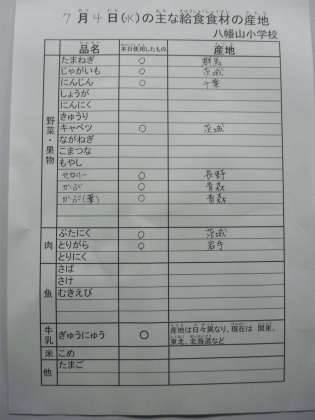 7月4日(水)の主な給食食材の産地
八幡山小学校
品名 本日使用したもの 産地
野菜・果物
たまねぎ ○ 群馬
じゃがいも ○ 茨城
にんじん ○ 千葉
しょうが
にんにく
きゅうり
キャベツ ○ 茨城
ながねぎ
こまつな
もやし
セロリー ○ 長野
かぶ ○ 青森
かぶ(葉) ○ 青森
肉
ぶたにく ○ 茨城
とりがら ○ 岩手
とりにく
魚
さば
さけ
むきえび
牛乳 ぎゅうにゅう ○ 産地は日々異なり、現在は 関東、
東北、北海道など
米 こめ
他 たまご